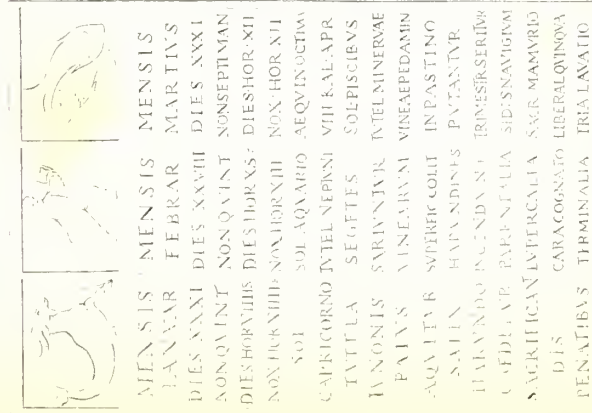 MENSIS
IANVAR
DIES XXXI
NON QVINT
DIES HOR VIIIIS
NOX HOR XIIIIS
SOL
CAPRICORNO
TVTELA
IVNONIS
PALVS
AQVITVR
SALIX
HARVNDO
CAEDITVR
SACRIFICAN
DIS
PENATIBVS
MENSIS
FEBRAR
DIES XXVIII
NON QVINT
DIES HOR XS
NOX HOR XIII
SOL AQVARIO
TVTEL NEPTVNI
SEGETES
SARIVNTVR
VINEARVM
SVPERFIC COLIT
HARVNDINES
INCENDVNT
PARENTALIA
LVPERCALIA
CARA COGNATIO
TERMINALIA
MENSIS
MARTIVS
DIES XXXI
NON SEPTIMAN
DIES HOR XII
NOX HOR XII
AEQVINOCTIVM
VIII KAL APR
SOL PISCIBVS
TVTEL MINERVAE
VINEAE PEDAMIN
IN PASTINO
PVTANTVR
TRIMESTR SERITVR
ISIDIS NAVIGIVM
SACR MAMVRIO
LIBERAL QVINQVA
TRIA LAVATIO